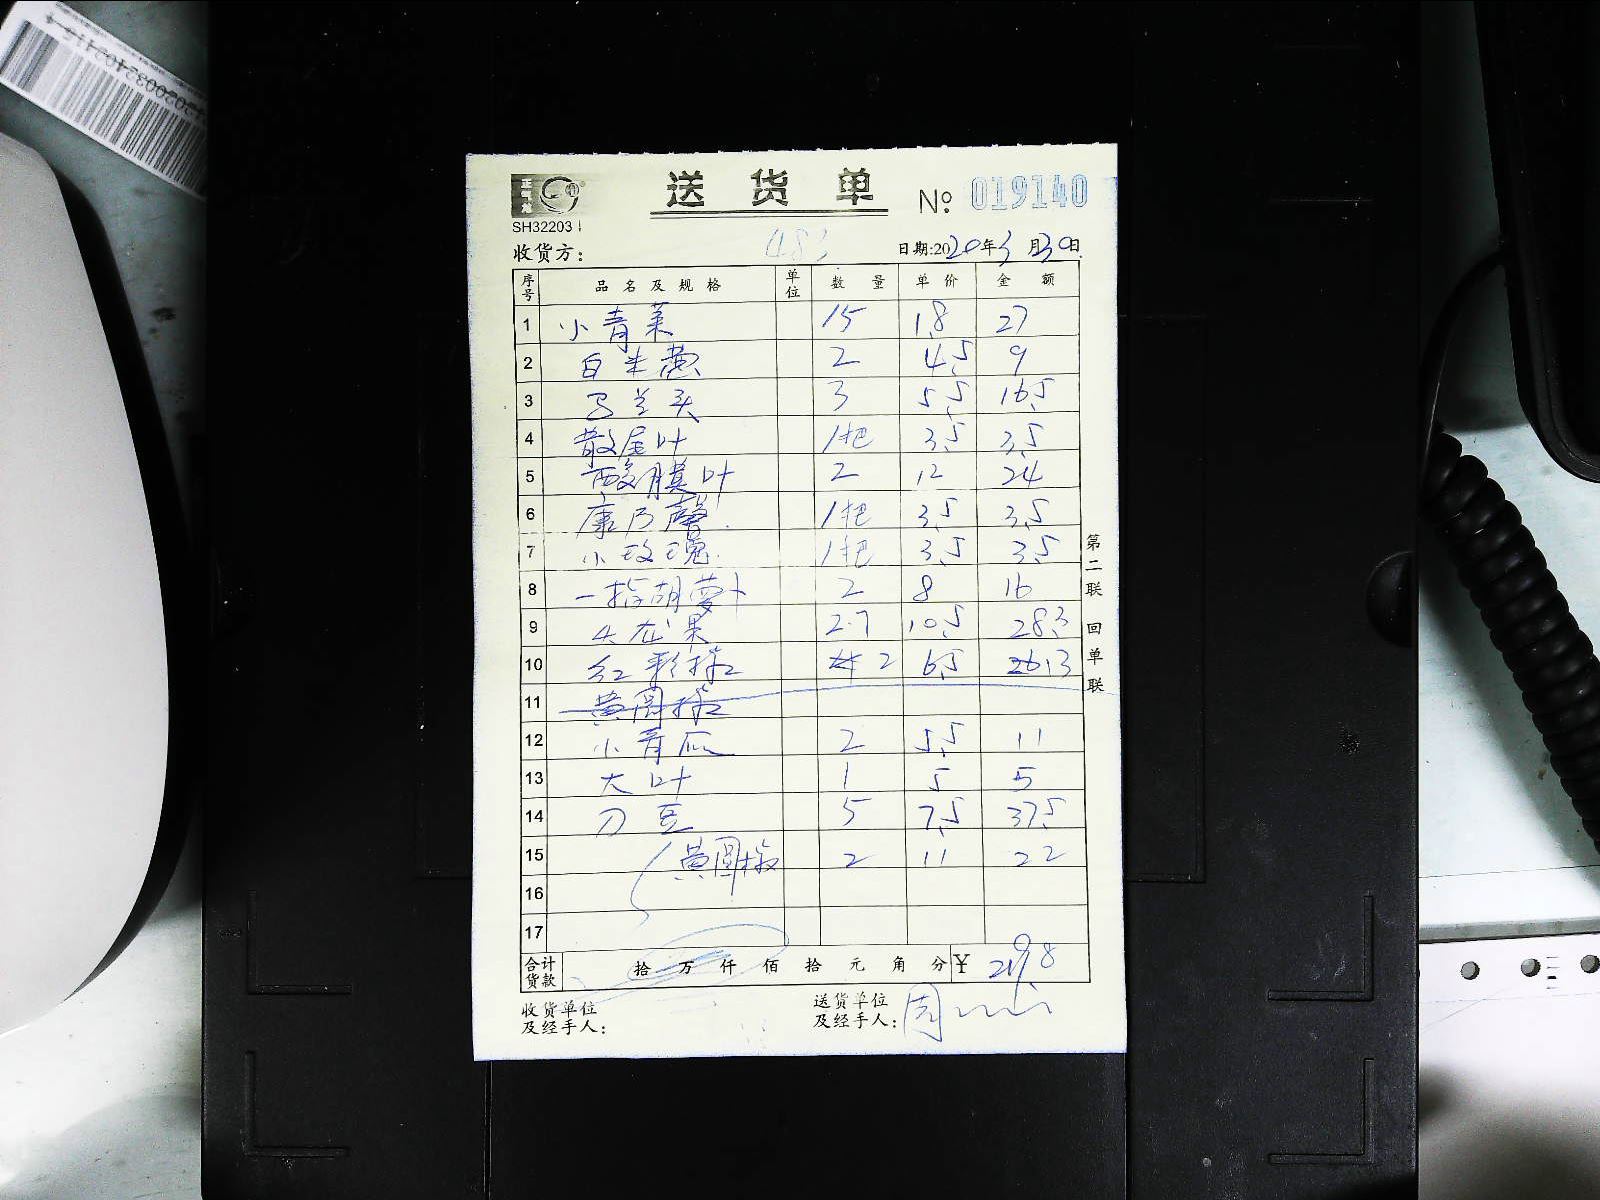 送货单 № 019140
SH32203
收货方: 483 日期:2020年3月30日
序号 品名及规格 单位 数量 单价 金额
1 小青菜 15 1.8 27
2 白米苋 2 4.5 9
3 马兰头 3 5.5 16.5
4 散尾叶 1把 3.5 3.5
5 酸膜叶 2 12 24
6 康乃馨 1把 3.5 3.5
7 小玫瑰 1把 3.5 3.5
8 一指胡萝卜 2 8 16
9 火龙果 2.7 10.5 28.3
10 红彩椒 2 6.5 13
11 黄圆椒
12 小青瓜 2 5.5 11
13 大叶 1 5 5
14 刀豆 5 7.5 37.5
15 黄圆椒 2 11 22
16
17
合计货款 拾万仟佰拾元角分 ¥ 219.8
收货单位及经手人: 送货单位及经手人: 周
第二联 回单联